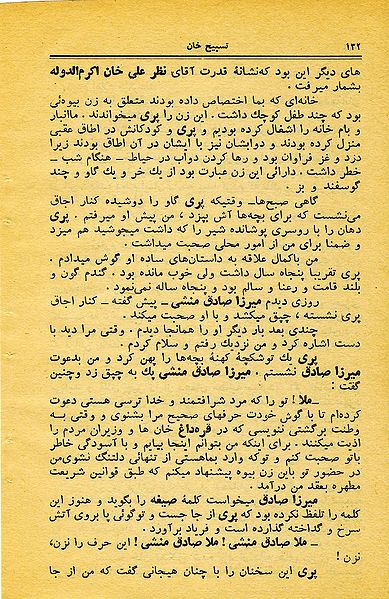 ۱۲۲ تسبیح خان
های دیگر این بود که نشانهٔ قدرت آقای نظر علی خان اکرم‌الدوله
بشمار میرفت .
خانه‌ای که بما اختصاص داده بودند متعلق به زن بیوه‌ئی
بود که چند طفل کوچك داشت . این زن را پری میخواندند . ماانبار
و بام خانه را اشغال کرده بودیم و پری و کودکانش در اطاق عقبی
منزل کرده بودند و دوابشان نیز با ایشان در آن اطاق بودند زیرا
دزد و غز فراوان بود و رها کردن دوآب در حیاط ــ هنگام شب ــ
خطر داشت . دارائی این زن عبارت بود از یك خر و یك گاو و چند
گوسفند و بز .
گاهی صبح‌ها، وقتیکه پری گاو را دوشیده کنار اجاق
می‌نشست که برای بچه‌ها آش بپزد ، من پیش او میرفتم . پری
دهان را با روسری پوشانده شیر را که داشت میجوشید هم میزد
و ضمنا برای من از امور محلی صحبت میداشت .
من باکمال علاقه به داستان‌های ساده او گوش میدادم .
پری تقریبا پنجاه سال داشت ولی خوب مانده بود . گندم گون و
بلند قامت و رعنا و سالم بود و پنجاه ساله نمی‌نمود .
روزی دیدم میرزا صادق منشی ــ پیش گفته ــ کنار اجاق
پری نشسته ، چپق میکشد و با او صحبت میکند .
چندی بعد بار دیگر او را همانجا دیدم . وقتی مرا دید با
دست اشاره کرد و من نزدیك رفتم و سلام کردم .
پری یك توشکچهٔ کهنهٔ بچه‌ها را پهن کرد و من بدعوت
میرزا صادق نشستم . میرزا صادق منشی پك به چپق زد وچنین
گفت :
ــ ملا ! تو را که مرد شرافتمند و خدا ترسی هستی دعوت
کرده‌ام تا با گوش خودت حرفهای صحیح مرا بشنوی و وقتی بــه
وطنت برگشتی ننویسی که در قره‌داغ خان ها و وزیران مردم را
اذیت میکنند . برای اینکه من بتوانم اینجا بیایم و با آسودگی خاطر
باتو صحبت کنم و توکه وارد بماهستی از تنهائی دلتنگ نشوی‌من
در حضور تو باین زن بیوه پیشنهاد میکنم که طبق قوانین شریعت
مطهره بعقد من درآمد .
میرزا صادق میخواست کلمهٔ صیغه را بگوید و هنوز این
کلمه را تلفظ نکرده بود که پری از جا جست و توگوئی پا بروی آتش
سرخ و گداخته گذارده است و فریاد برآورد .
ــ ملا صادق منشی ! ملا صادق منشی ! این حرف را نزن،
نزن !
پری این سخنان را با چنان هیجانی گفت که من از جا